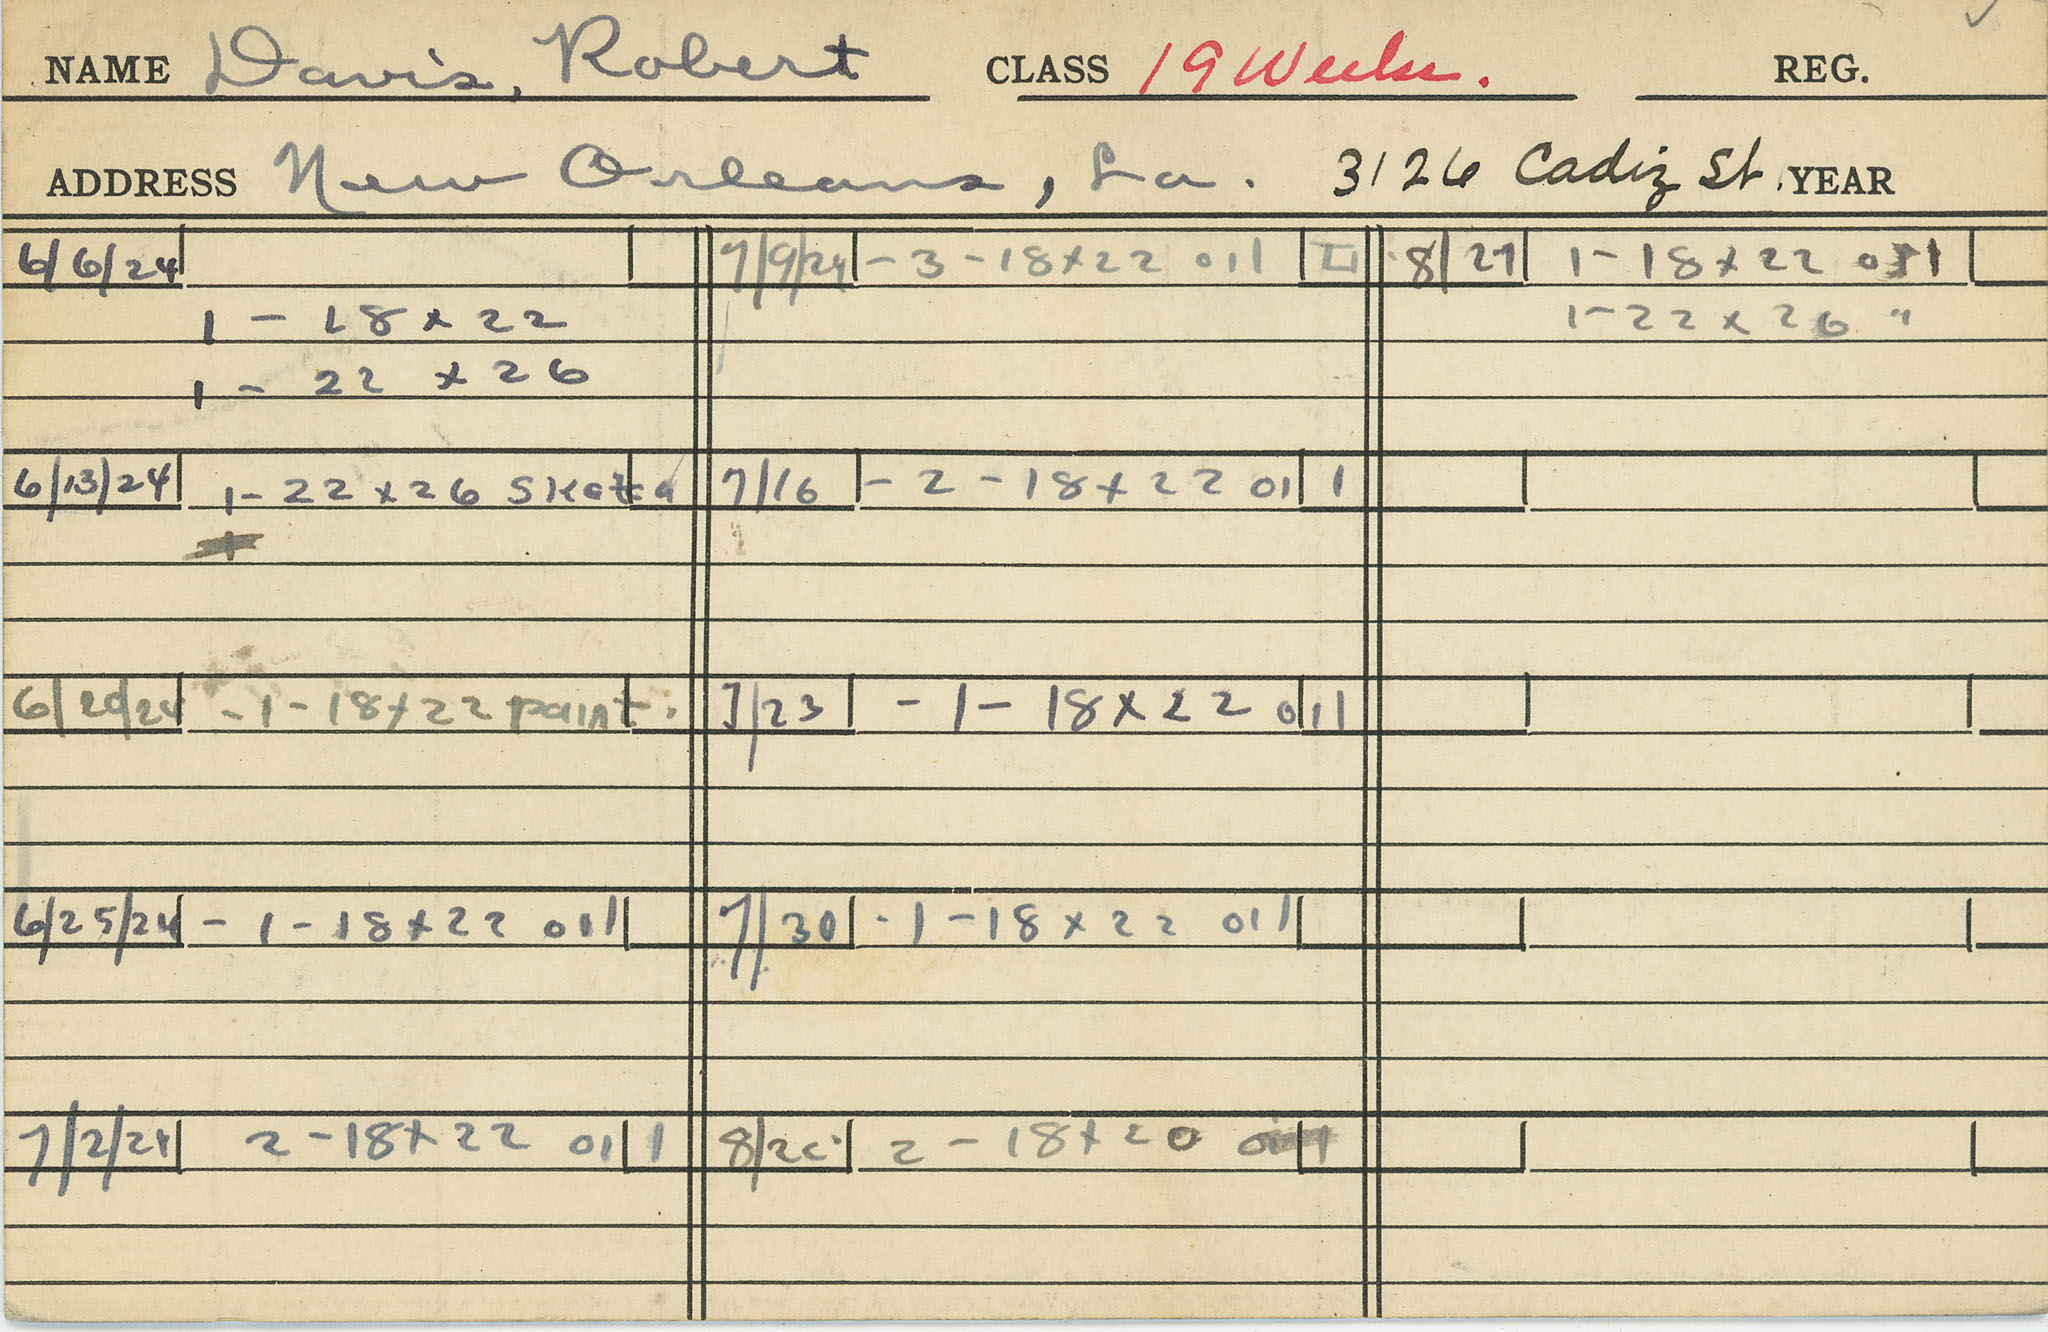 NAME Davis, Robert CLASS 19 Weeks. REG.
ADDRESS New Orleans, La. 3126 Cadiz St. YEAR
6/6/24
1 - 18 x 22
1 - 22 x 26
6/13/24 1 - 22 x 26 Sketch
6/20/24 - 1 - 18 x 22 paint.
6/25/24 - 1 - 18 x 22 oil
7/2/24 2 - 18 x 22 oil
7/9/24 - 3 - 18 x 22 oil
7/16 - 2 - 18 x 22 oil
7/23 - 1 - 18 x 22 oil
7/30 - 1 - 18 x 22 oil
2 - 18 x 20 oil
8/27 1 - 18 x 22 oil
1 - 22 x 26 "